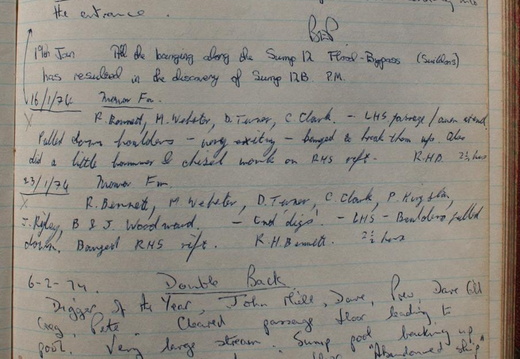 the entrance.
19th Jan All the banging along the Sump 12 Flood-Bypass
has resulted in the discovery of Sump 12B P.M.
16/1/74 Manor Fm.
R. Bennett, M. Webster, D. Turner, C. Clark. - LHS passage /
Pulled down boulders - very exciting - banged to break them up. Also
did a little hammer & chisel work on RHS rift. R.H.B. 2½ hrs
23/1/74 Manor Fm
R. Bennett, M Webster, D. Turner, C. Clark, P.
Ripley, B & J. Woodward. - End digs - LHS - Boulders pulled
down. Banged RHS rift. R.H. Bennett. 2½ hrs
6-2-74. Double Back
Digger of the Year, John Hill, Dave, Dave Old
Greg, Pete. Cleared passage floor leading to
pool. Very large stream. Sump pool backing up
"Abandoned